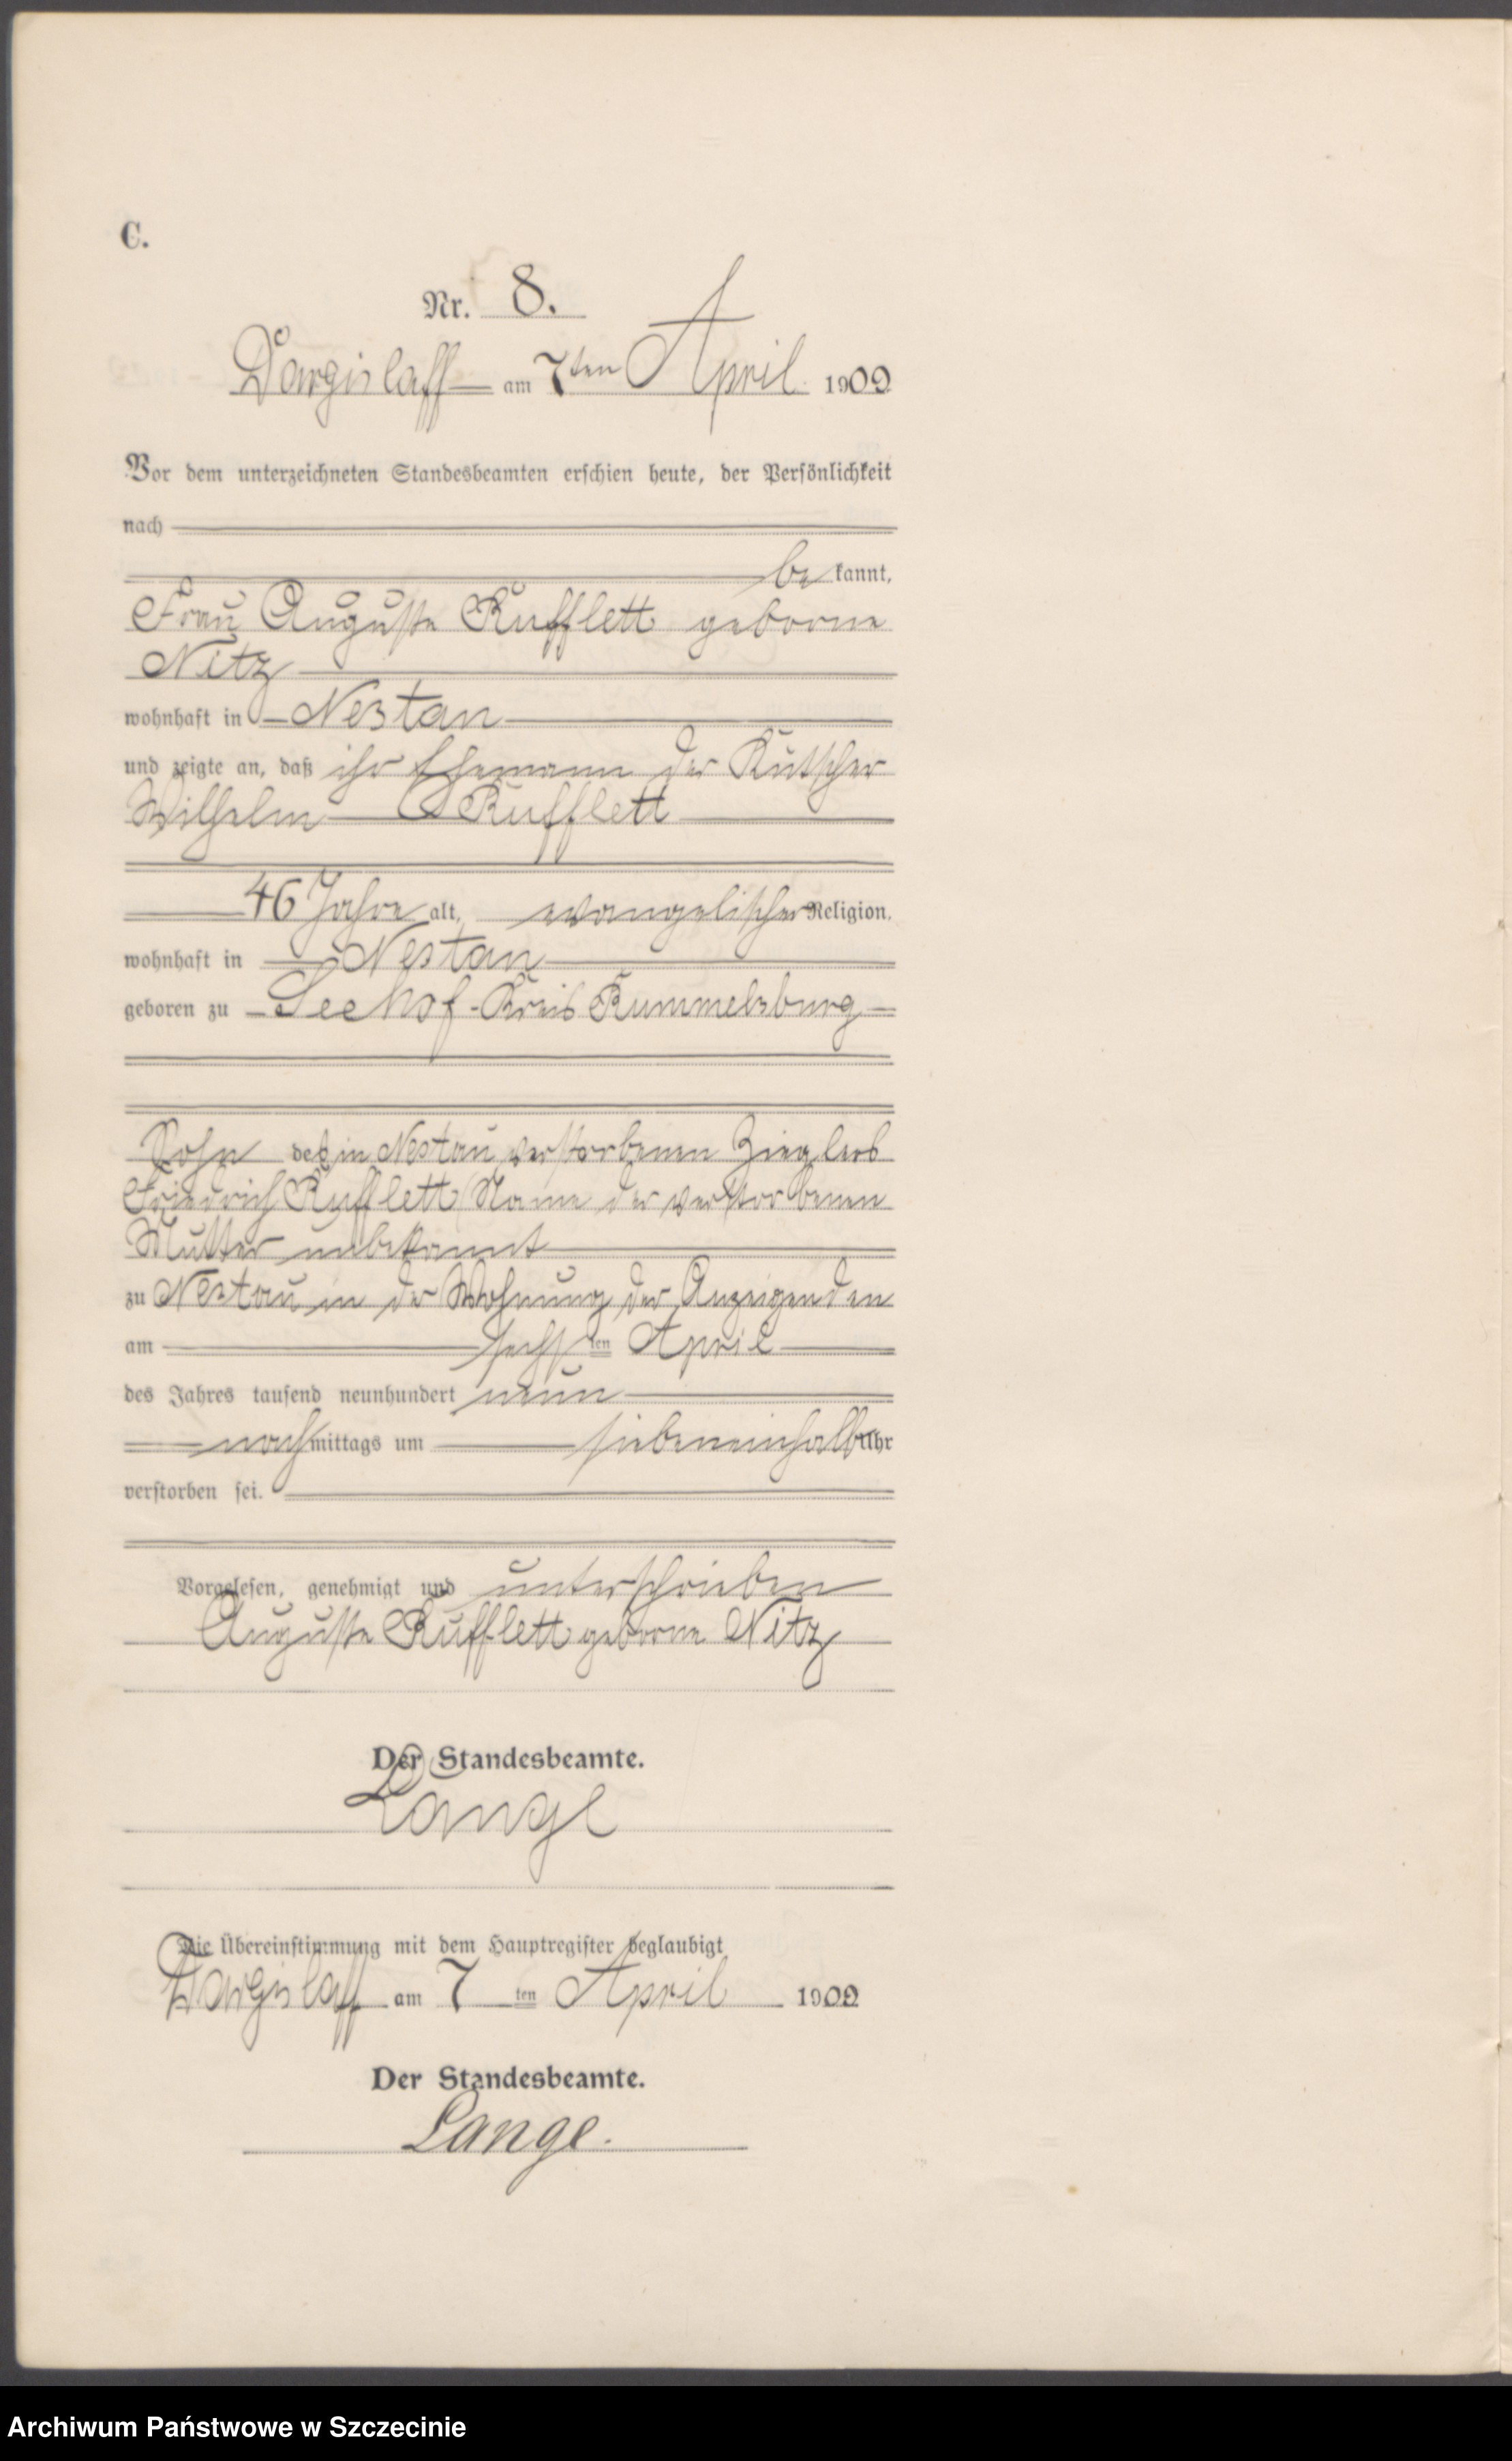 C.
Nr. 8.
Dargislaff am 7ten April 1909
Vor dem unterzeichneten Standesbeamten erschien heute, der Persönlichkeit
nach
be kannt,
Frau Auguste Rufflett geborne
Nitz
wohnhaft in Nestau
und zeigte an, daß ihr Ehemann der Kutscher
Wilhelm Rufflett
46 Jahre alt, evangelischer Religion,
wohnhaft in Nestau
geboren zu Seehof Kreis Rummelsburg
Sohn des in Nestau verstorbenen Zieglers
Friedrich Rufflett, Name der verstorbenen
Mutter unbekannt
zu Nestau in der Wohnung der Anzeigenden
am sechsten April
des Jahres tausend neunhundert neun
nachmittags um siebeneinhalb Uhr
verstorben sei.
Vorgelesen, genehmigt und unterschrieben
Auguste Rufflett geborne Nitz
Der Standesbeamte.
Lange
Die Übereinstimmung mit dem Hauptregister beglaubigt
Dargislaff am 7ten April 1909
Der Standesbeamte.
Lange.
Archiwum Państwowe w Szczecinie